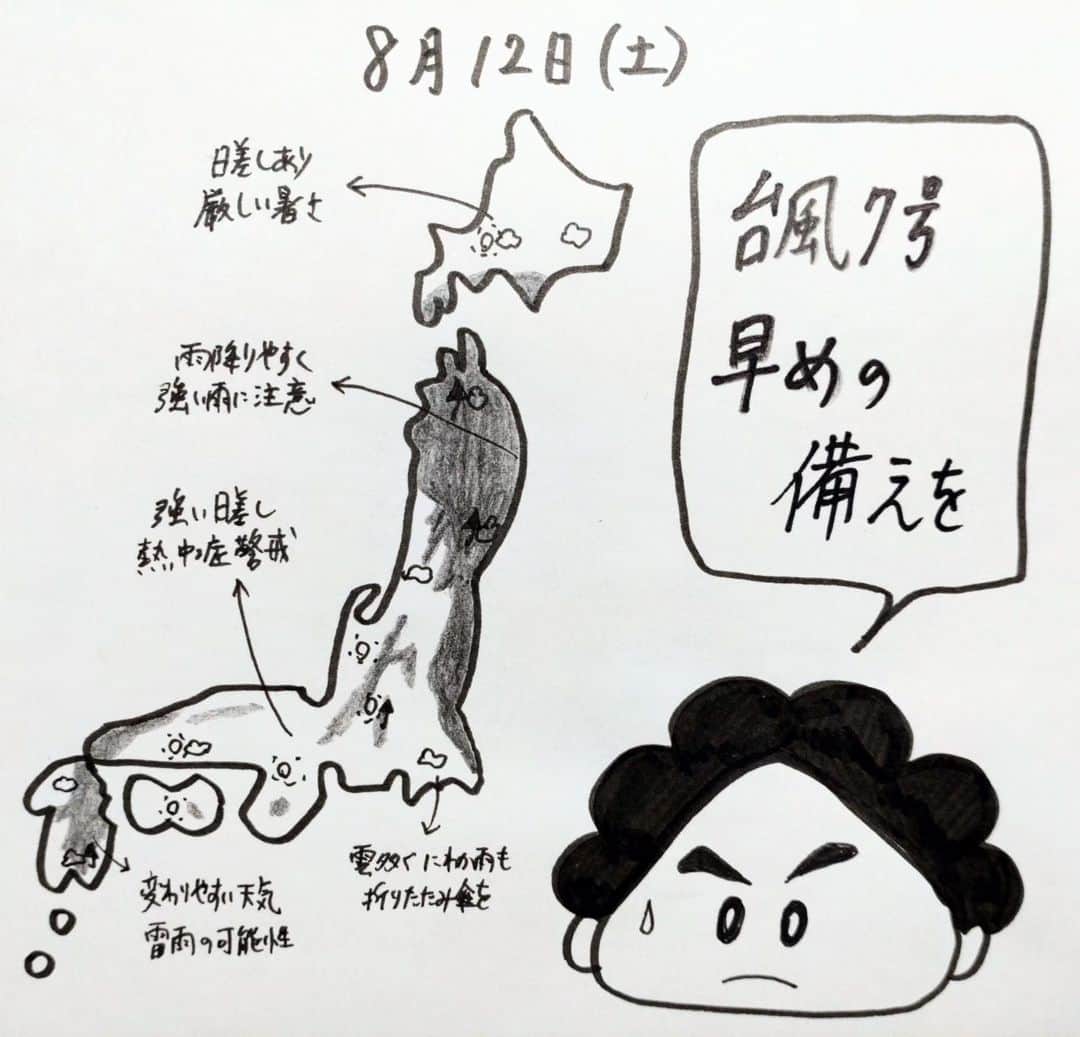 8月12日(土)
日差しあり
厳しい暑さ
台風7号
早めの
備えを
雨降りやすく
強い雨に注意
強い日差し
熱中症警戒
雲多くにわか雨も
折りたたみ傘を
変わりやすい天気
雷雨の可能性